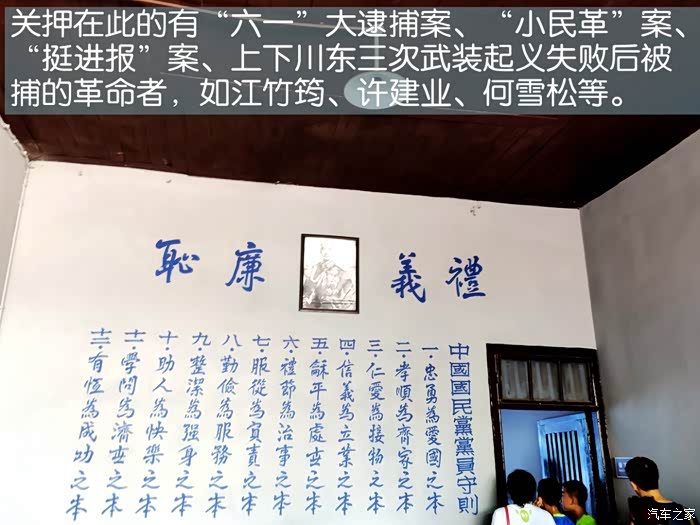 关押在此的有“六一”大逮捕案、“小民革”案、
“挺进报”案、上下川东三次武装起义失败后被
捕的革命者，如江竹筠、许建业、何雪松等。
禮義廉恥
中國國民黨黨員守則
一·忠勇為愛國之本
二·孝順為齊家之本
三·仁愛為接物之本
四·信義為立業之本
五·龢平為處世之本
六·禮節為治事之本
七·服從為負責之本
八·勤儉為服務之本
九·整潔為强身之本
十·助人為快樂之本
十一·學問為濟世之本
十二·有恆為成功之本
汽车之家